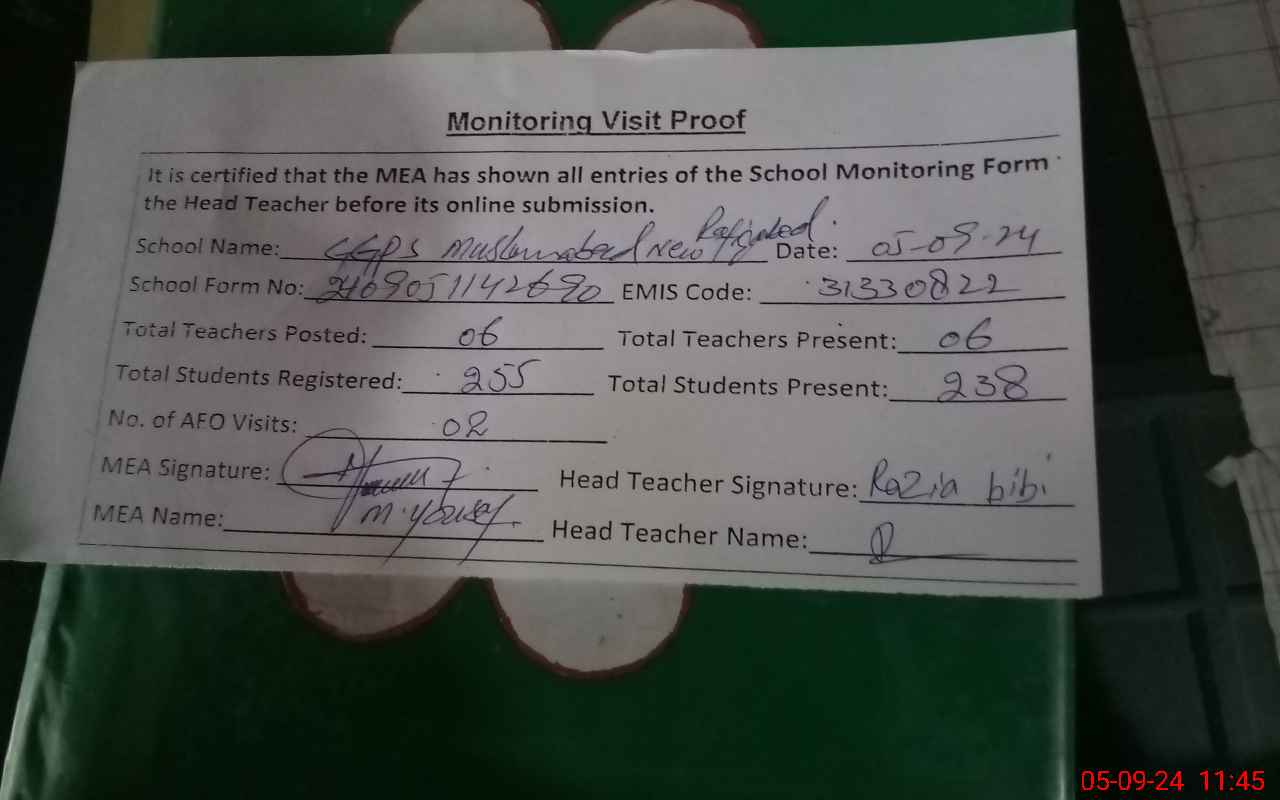 Monitoring Visit Proof
It is certified that the MEA has shown all entries of the School Monitoring Form
the Head Teacher before its online submission.
School Name: GGPS Muslimabad New Date: 05-09-24
School Form No: 2469051142690 EMIS Code: 31330822
Total Teachers Posted: 06 Total Teachers Present: 06
Total Students Registered: 255 Total Students Present: 238
No. of AEO Visits: 02
MEA Signature: Head Teacher Signature: Razia bibi
MEA Name: M. Yousaf. Head Teacher Name:
05-09-24 11:45